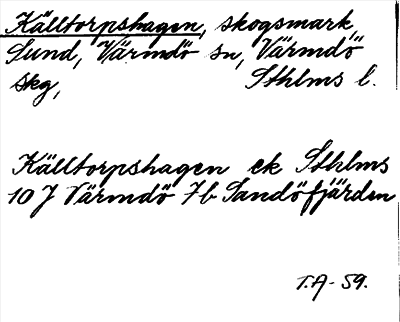 Källtorpshagen, skogsmark,
Sund, Värmdö sn, Värmdö
skg, Sthlms l.
Källtorpshagen ek Sthlms
10 J Värmdö 7b Sandöfjärden
T.A-59.